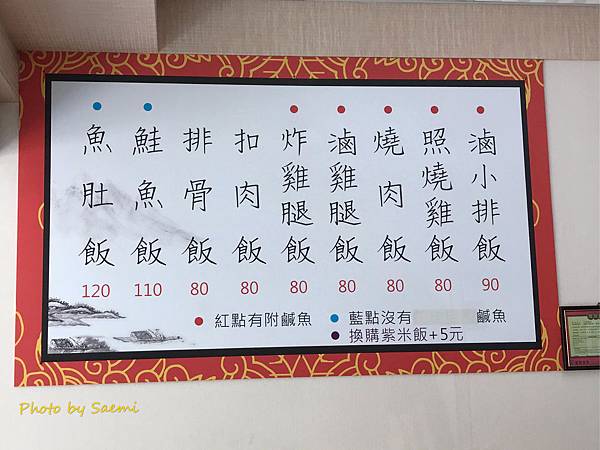 魚肚飯 120
鮭魚飯 110
排骨飯 80
扣肉飯 80
炸雞腿飯 80
滷雞腿飯 80
燒肉飯 80
照燒雞飯 80
滷小排飯 90
紅點有附鹹魚
藍點沒有 鹹魚
換購紫米飯+5元
Photo by Saemi